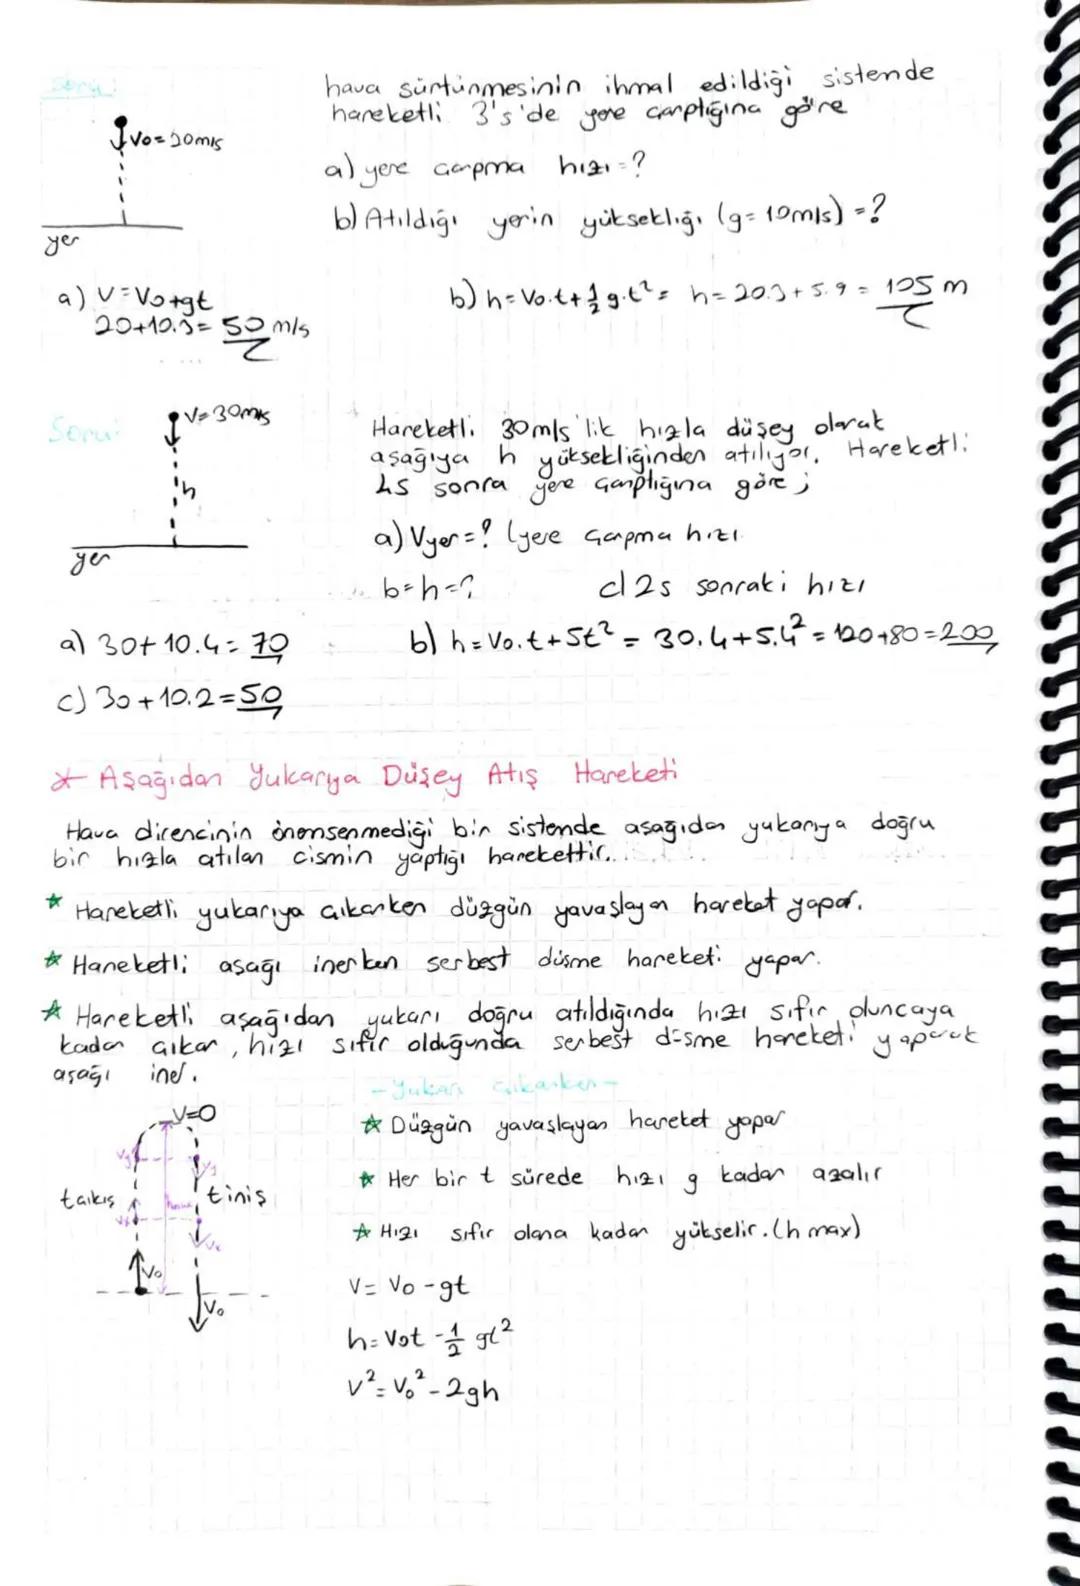 Soru:
hava sürtünmesinin ihmal edildiği sistemde
hareketli 3's'de yere çarptığına göre
V0=20m/s
a) yere çarpma hızı=?
b) Atıldığı yerin yüksekliği (g=10m/s)=?
yer
a) V=V0+gt
20+10.3= 50 m/s
b) h=V0.t+1/2 g.t²= h=20.3+5.9= 105 m
Soru:
V=30m/s
h
yer
Hareketli 30m/s'lik hızla düşey olarak
aşağıya h yüksekliğinden atılıyor. Hareketli
4s sonra yere çarptığına göre;
a) Vyer=? (yere çarpma hızı
b=h=?
c) 2s sonraki hızı
a) 30+10.4=70
b) h=V0.t+5t² = 30.4+5.4²=120+80=200
c) 30+10.2=50
* Aşağıdan Yukarıya Düşey Atış Hareketi
Hava direncinin önemsenmediği bir sistemde aşağıdan yukarıya doğru
bir hızla atılan cismin yaptığı harekettir.
☆ Hareketli yukarıya çıkarken düzgün yavaşlayan hareket yapar.
☆ Hareketli aşağı inerken serbest düşme hareketi yapar.
☆ Hareketli aşağıdan yukarı doğru atıldığında hızı sıfır oluncaya
kadar çıkar, hızı sıfır olduğunda serbest düşme hareketi yaparak
aşağı iner.
-Yukarı çıkarken-
V=0
Vy
Vy
tçıkış
hmax
tiniş
Vx
Vx
V0
V0
☆ Düzgün yavaşlayan hareket yapar
☆ Her bir t sürede hızı g kadar azalır
☆ Hızı sıfır olana kadar yükselir. (h max)
V= V0 -gt
h=V0t -1/2 gt²
V²=V0²-2gh